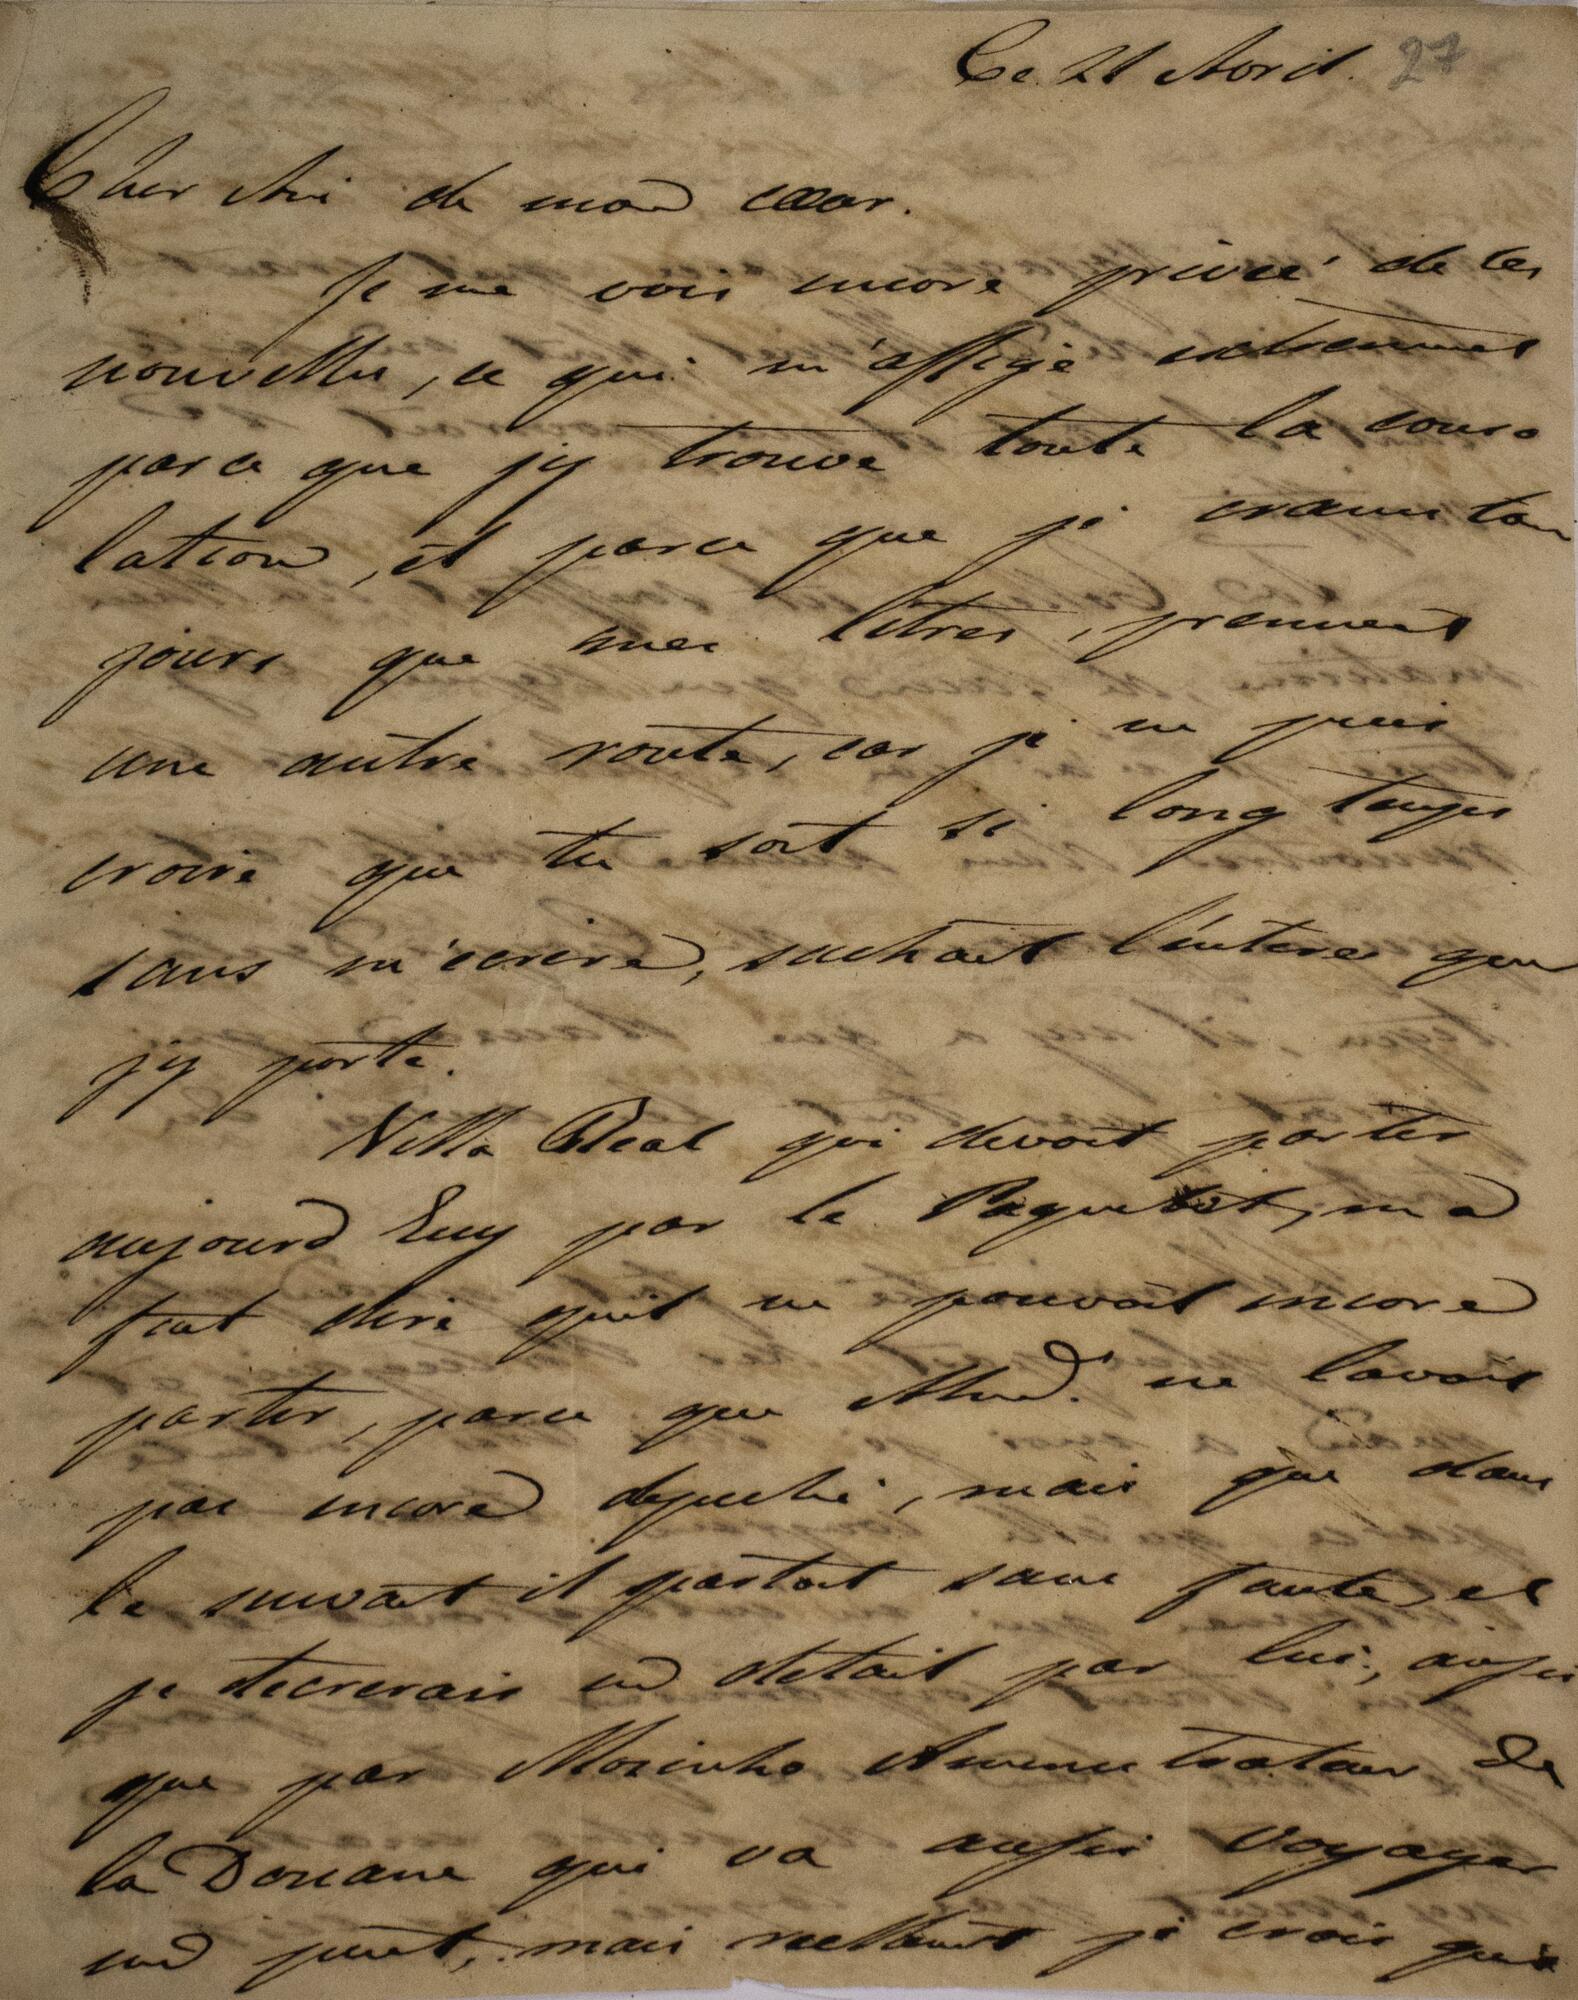 Ce 21 Avril. 27
Cher Ami de mon cœur.
Je me vois encore privée de tes
nouvelles, ce qui m'afflige extremmet
parce que jy trouve toute la conso
lation, et parce que je crains tou
jours que mes litres, prennent
une autre route, car je ne puis
croire que tu soit si long temps
sans m'ecrire, sachait l'interes que
jy porte.
Villa Real qui devoit partir
aujourd huy par le Paquebot, m a
fait dire quil ne pouvoit encore
partir, parce que Mad. ne lavoit
pas encore depeché, mais que dans
le suivat il partoit sans faute, et
je tecrerais en detail par lui, aussi
que par Mozinho Administrateur de
la Douane qui va aussi voyager
un peut, mais reellemet je crois que